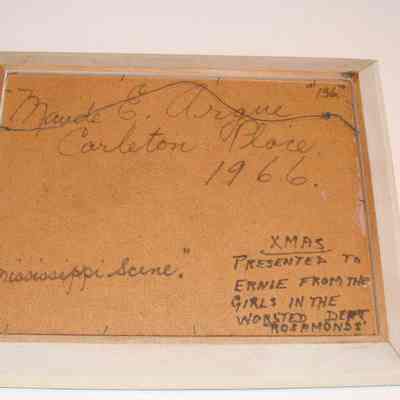 "136"
Maude E. Argue
Carleton Place
1966.
Mississippi Scene."
XMAS
PRESENTED TO
ERNIE FROM THE
GIRLS IN THE
WORSTED DEPT
ROSAMONDS.